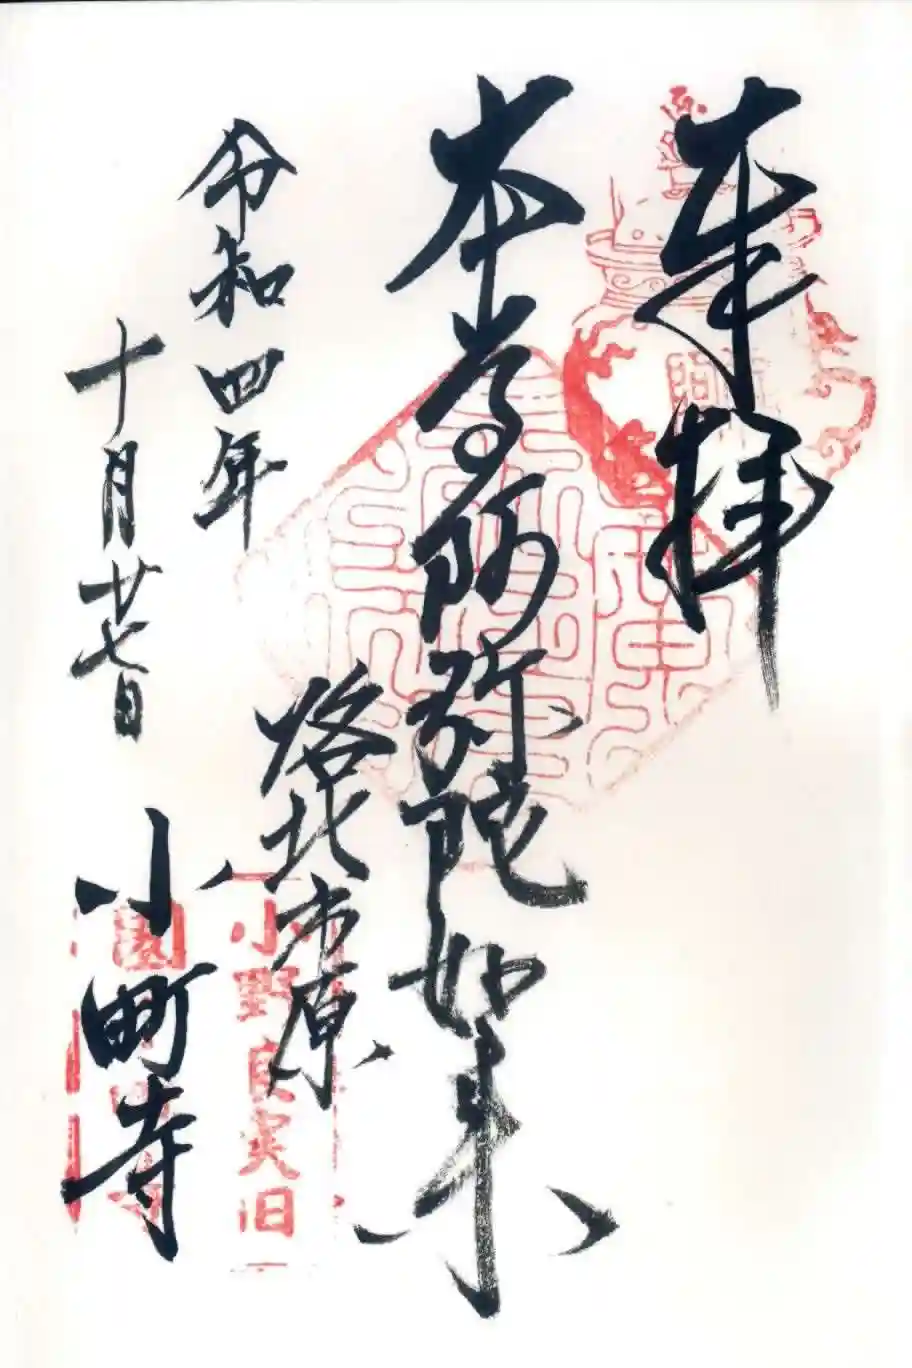 奉拝
本尊阿弥陀如来
洛北市原
小町寺
令和四年
十月廿七日
小野
良実旧